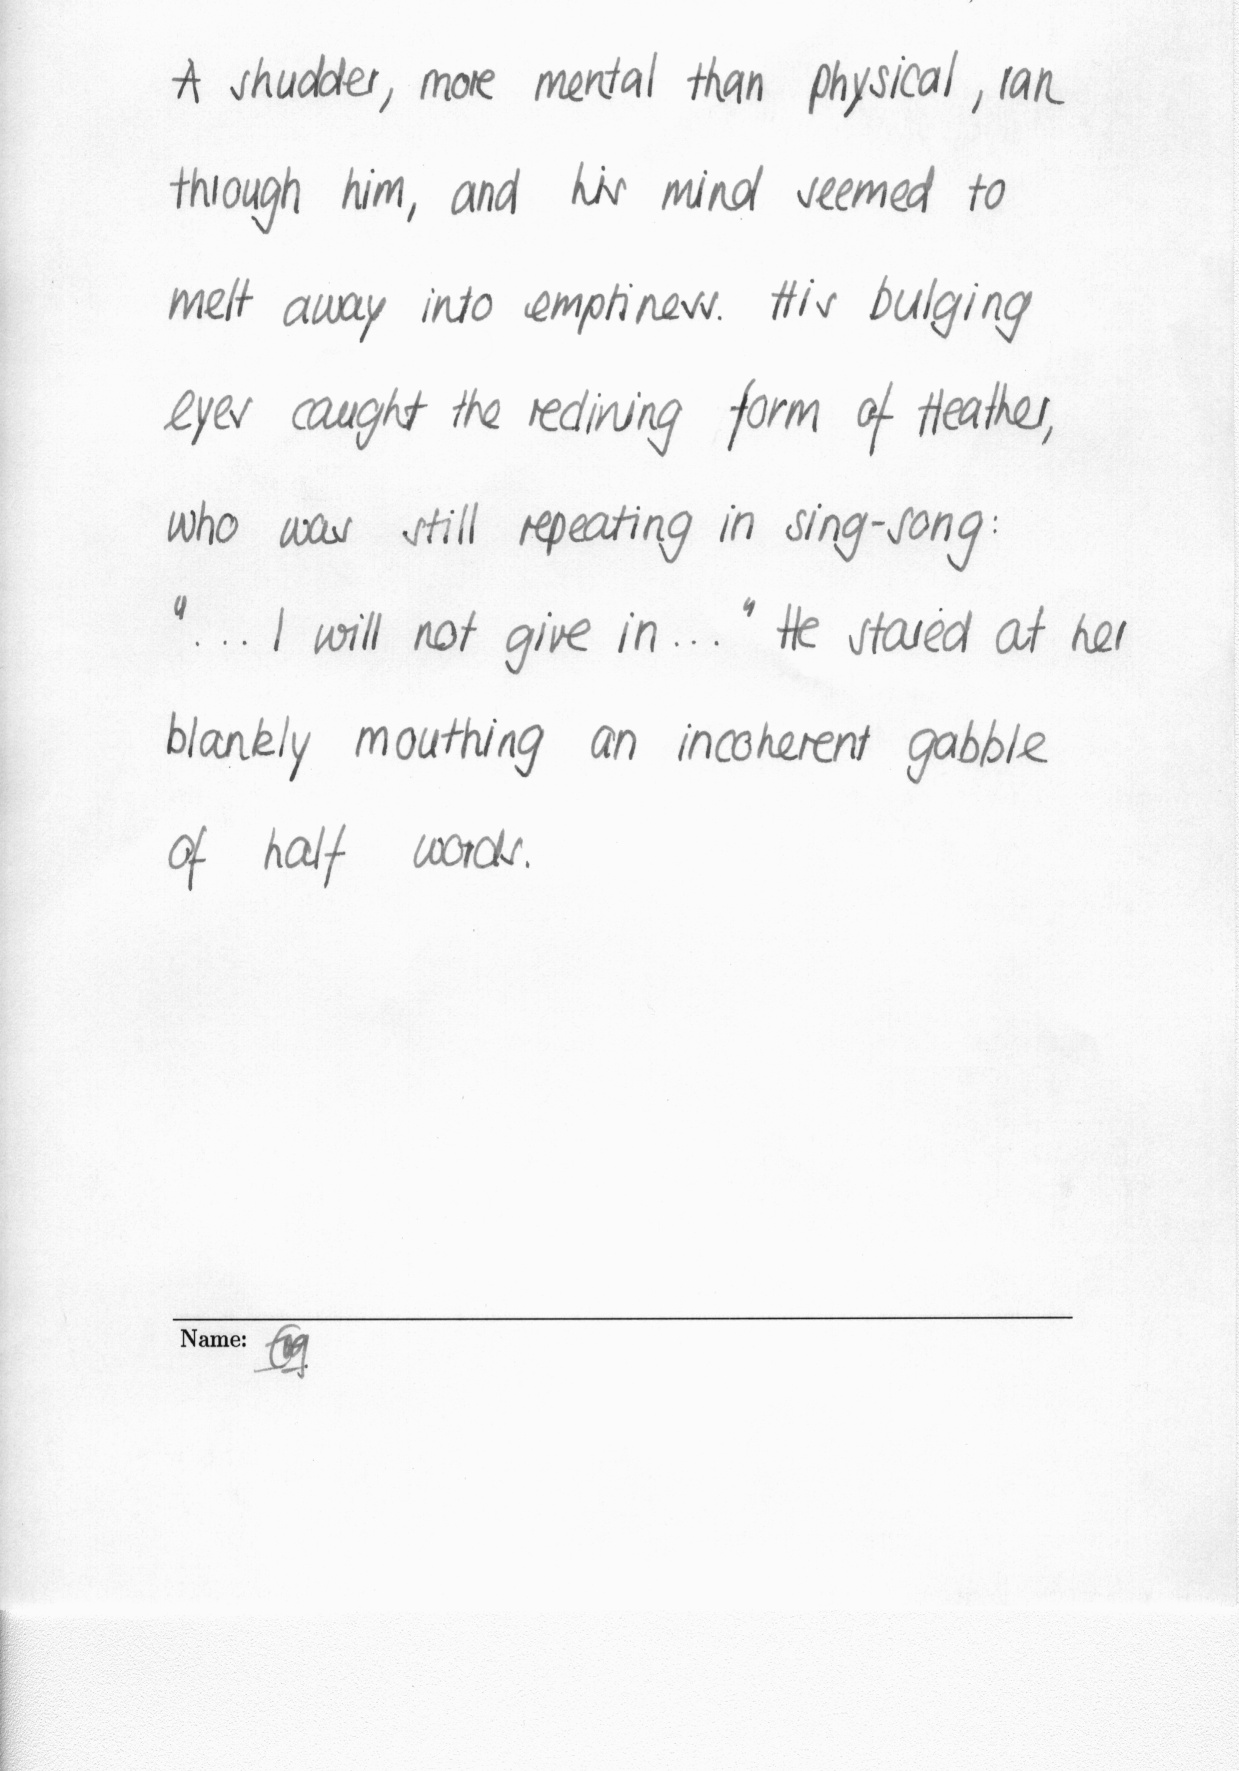 A shudder, more mental than physical, ran
through him, and his mind seemed to
melt away into emptiness. His bulging
eyes caught the reclining form of Heather,
who was still repeating in sing-song:
"... I will not give in..." He stared at her
blankly mouthing an incoherent gabble
of half words.
Name: